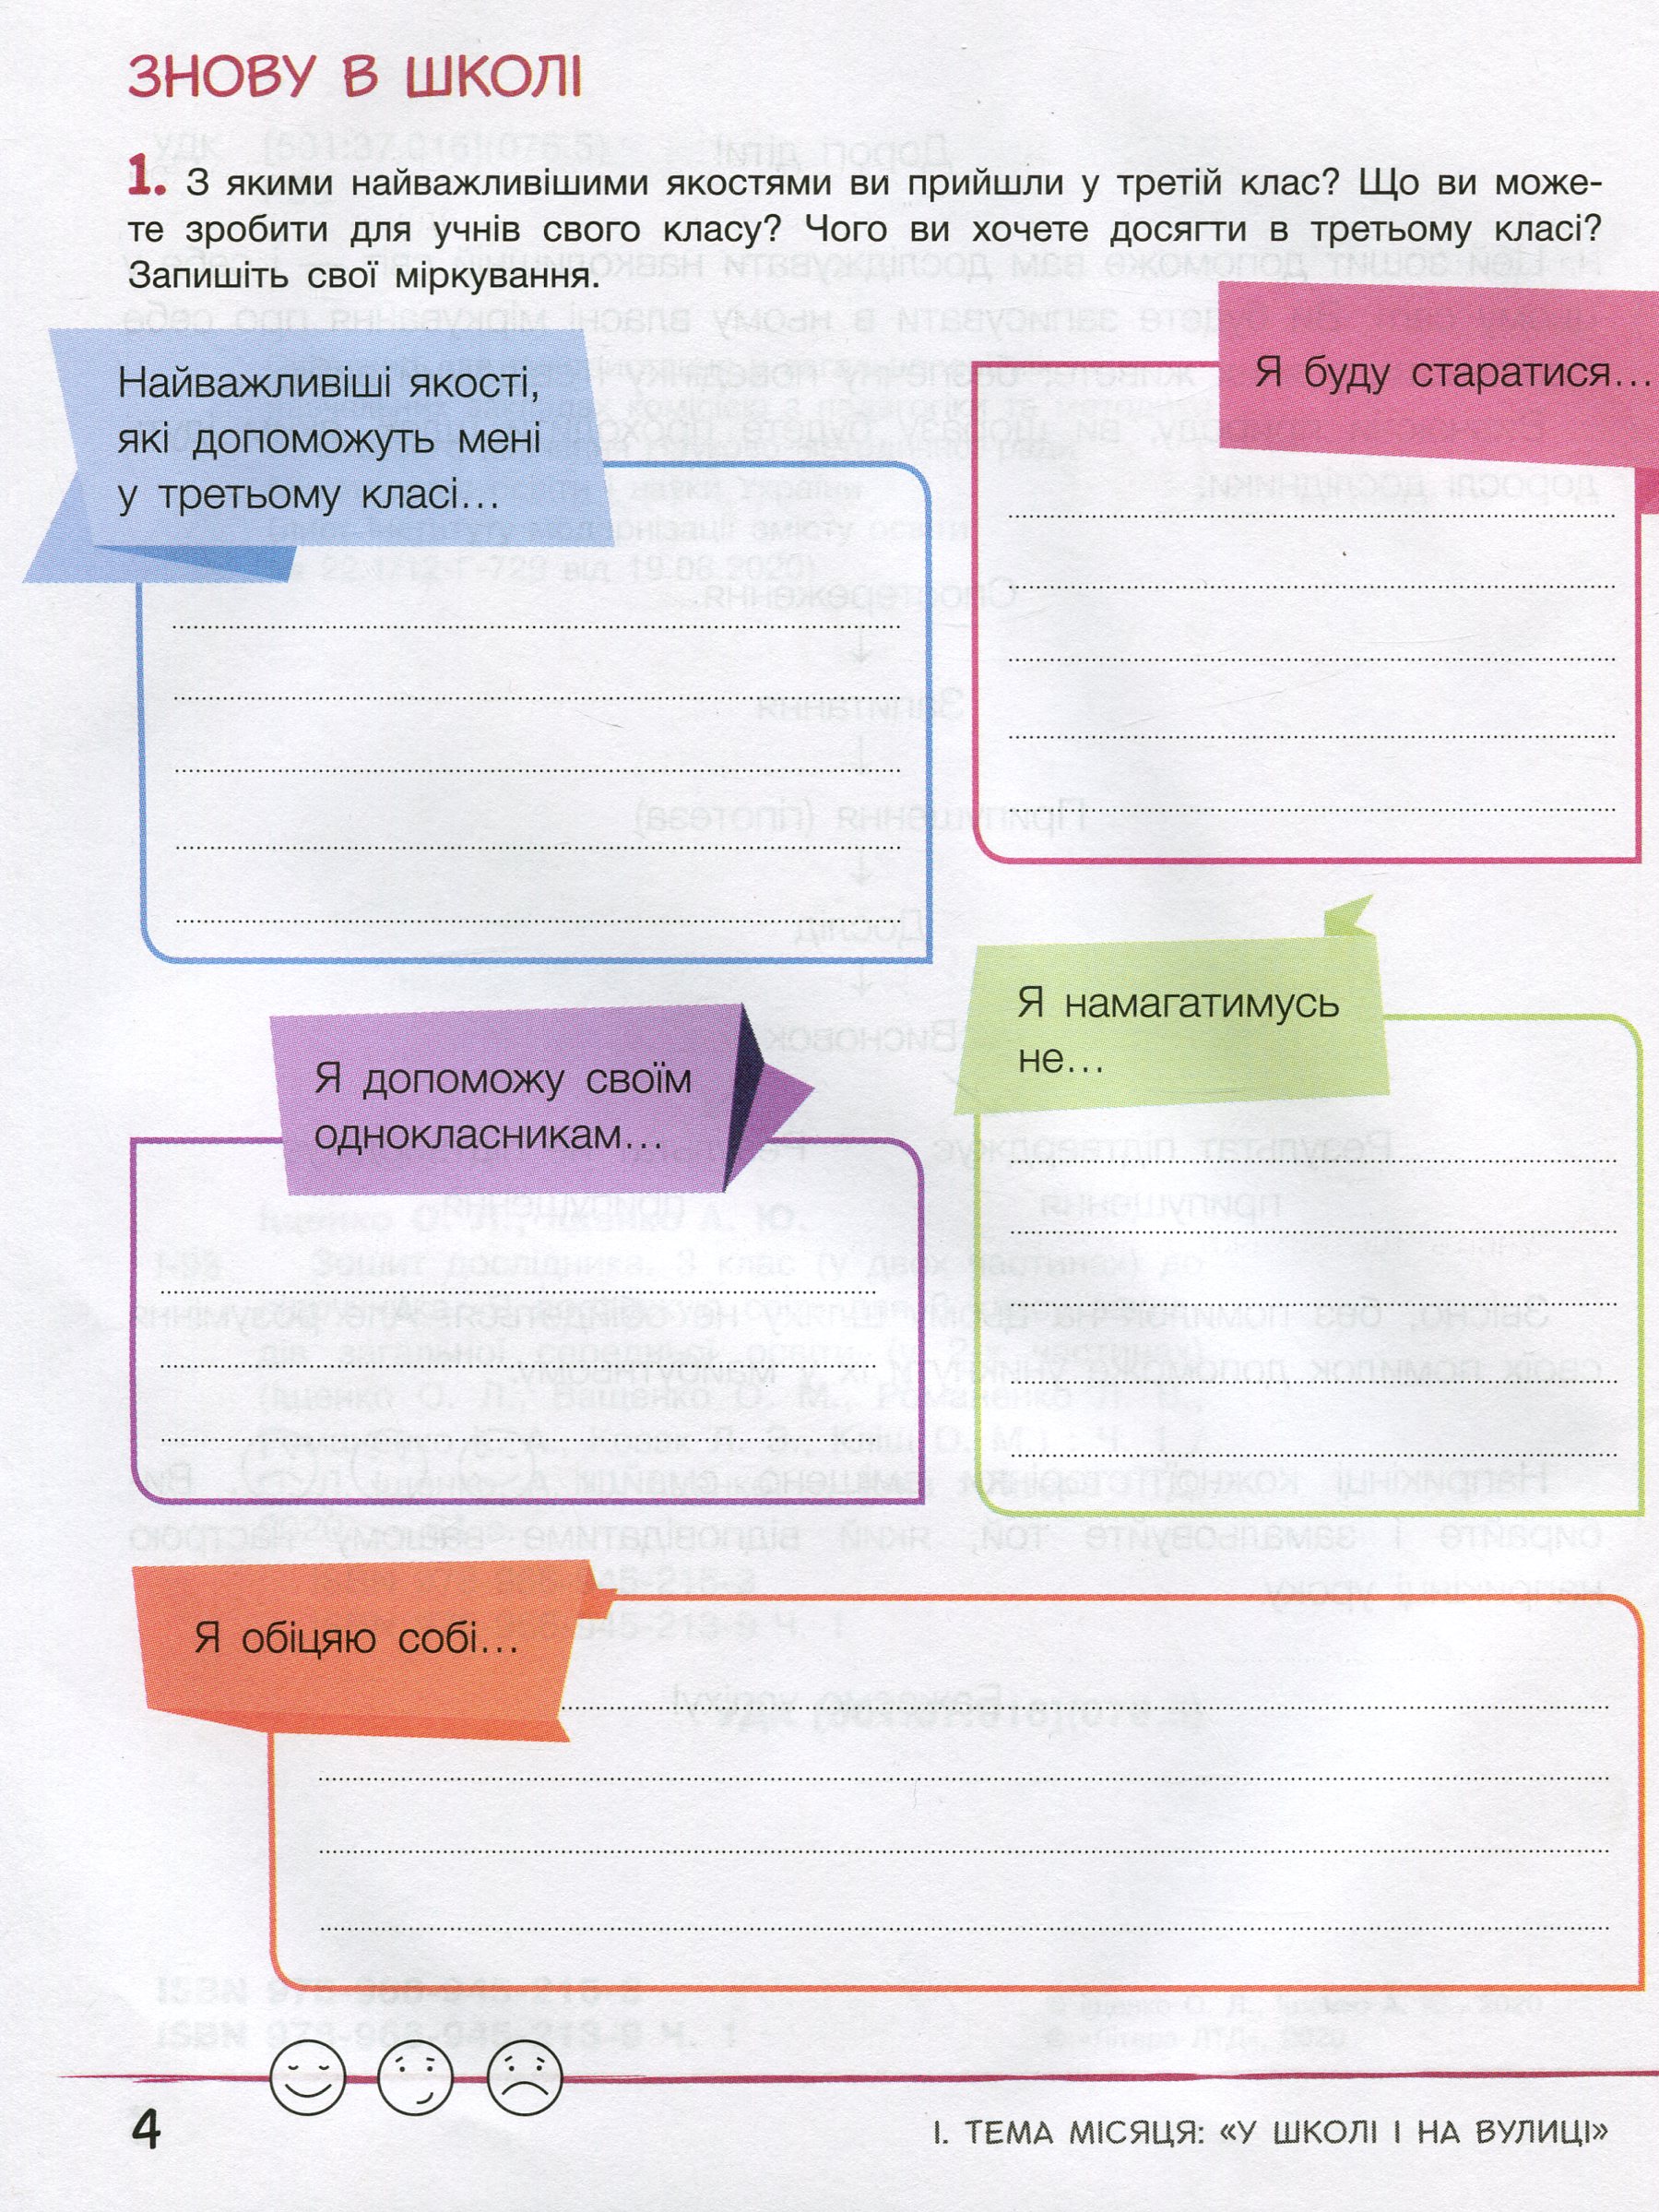 ЗНОВУ В ШКОЛІ
1. З якими найважливішими якостями ви прийшли у третій клас? Що ви може-
те зробити для учнів свого класу? Чого ви хочете досягти в третьому класі?
Запишіть свої міркування.
Найважливіші якості,
які допоможуть мені
у третьому класі...
Я буду старатися...
Я допоможу своїм
однокласникам...
Я намагатимусь
не...
Я обіцяю собі...
4
І. ТЕМА МІСЯЦЯ: «У ШКОЛІ І НА ВУЛИЦІ»